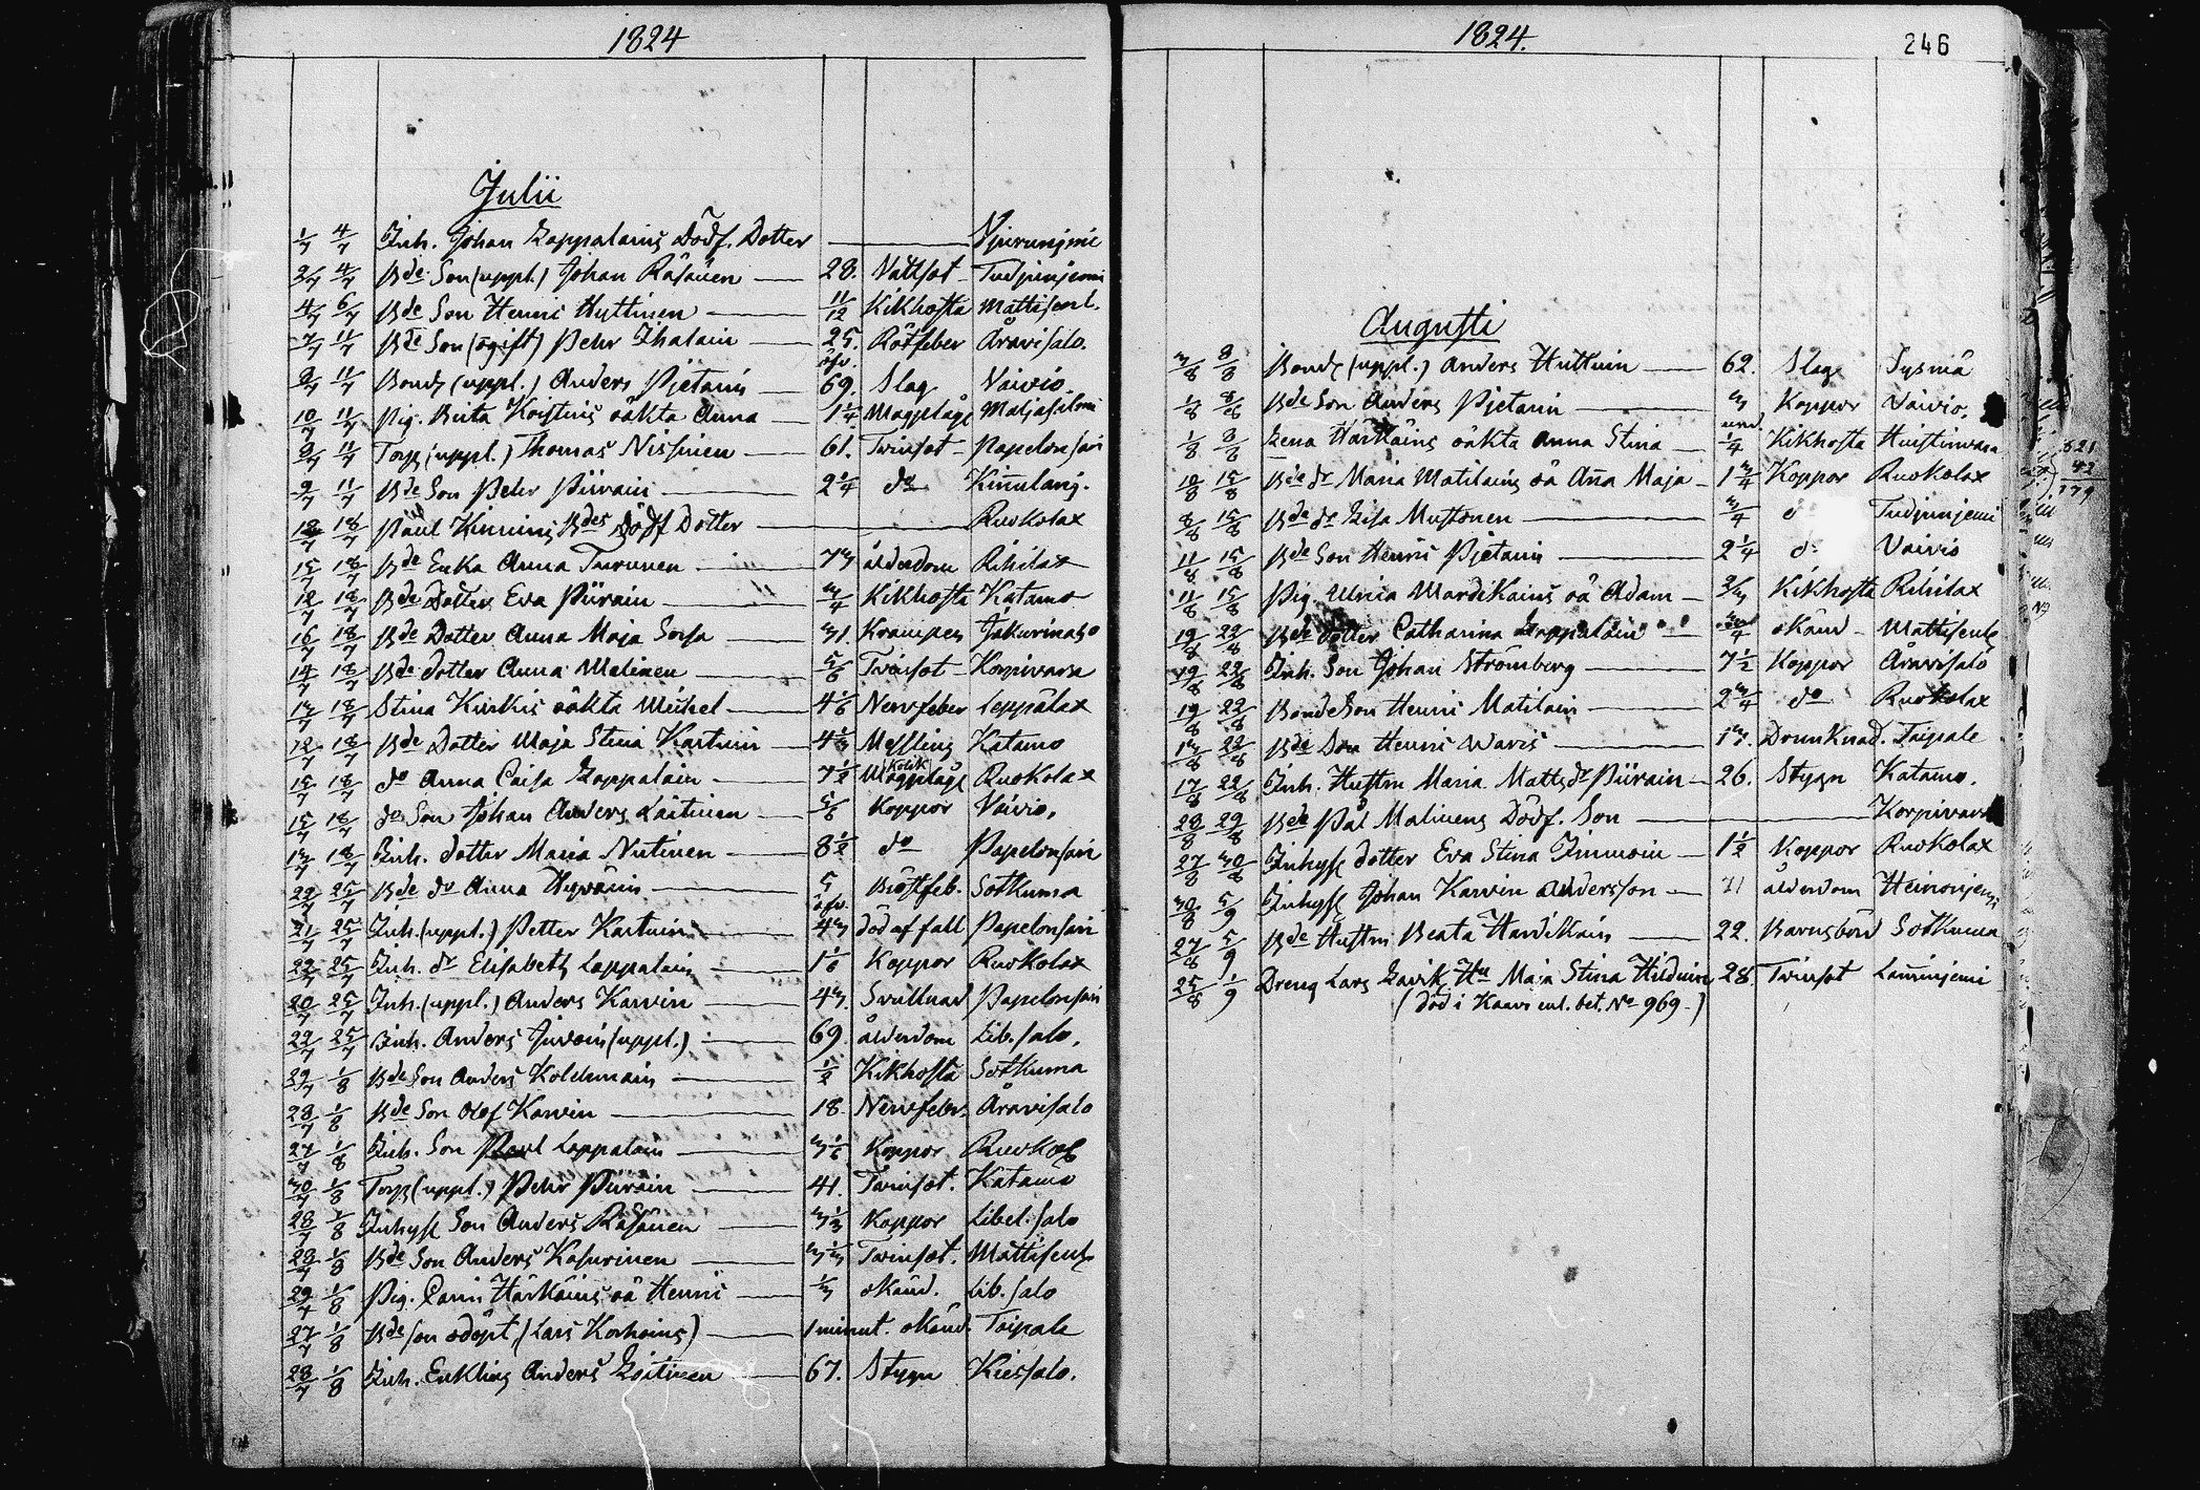 1824
Julii
1/7 4/7 Inh. Johan Loppalains Dödf. Dotter
2/7 4/7 Bde Son (uppl.) Johan Räsänen 28. Nättsot Tudjunjemi
4/7 6/7 Bde Son Henric Hyttinen 11/12 Kikhosta Mattisenl.
7/7 11/7 Bde Son (ogift) Pehr Ihalain 25. Rötfeber Åravisalo.
9/7 11/7 Bond (uppl.) Anders Pjetarin öfv. 69. Slag Vaivio.
10/7 11/7 Pig. Brita Koistins oäkta Anna 1 1/4 Magplåg
9/7 11/7 Torp (uppl.) Thomas Nissinen 61. Tvinsot Papelonsari
9/7 11/7 Bde Son Pehr Piirain 2 1/4 do Kinnulanj.
12/7 18/7 Paul Kinnins Bdes Dödf Dotter Ruokolax
15/7 18/7 Bde Enka Anna Turunen 73 ålderdom Rihilax
12/7 18/7 Bde Dotter Eva Piirain 3/4 Kikhosta Katamo
16/7 18/7 Bde Dotter Anna Maja Sorsa 31. Krampen
14/7 18/7 Bde dotter Anna Malinen 5/6 Tvinsot Korpivara
13/7 18/7 Stina Kurkis oäkta Michel 4/6 Nervfeber Leppälax
12/7 18/7 Bde Dotter Maja Stina Kartuin 4 1/3 Messling Katamo
15/7 18/7 do Anna Caisa Loppalain 7 1/2 Kolik Magplåge Ruokolax
15/7 18/7 do Son Johan Anders Laitinen 5/6 Koppor Vaivio.
13/7 18/7 Inh. dotter Maria Nutinen 8 1/2 do Papelonsari
22/7 25/7 Bde dr Anna Hyvärin 5 Bröstfeb. Sotkuma
21/7 25/7 Inh. (uppl.) Petter Kartuin öfv. 43 död af fall Papelonsari
22/7 25/7 Inh. dr Elisabeth Loppalain 1 1/6 Koppor Ruokolax
20/7 25/7 Inh. (uppl.) Anders Karvin 43. Svullnad Papelonsari
22/7 25/7 Inh. Anders Juvain (uppl.) 69. ålderdom Lib.salo.
29/7 1/8 Bde Son Anders Kolehmain 1/2 Kikhosta Sotkuma
28/7 1/8 Bde Son Olof Karvin 18. Nervfebr. Åravisalo
27/7 1/8 Inh. Son Paul Loppalain 3 1/6 Koppor
30/7 1/8 Torp (uppl.) Pehr Piirain 41. Tvinsot. Katamo
28/7 1/8 Inhyse Son Anders Räsänen 3 1/3 Koppor Libel.salo
28/7 1/8 Bde Son Anders Kosurinen 3 1/3 Tvinsot. Mattisenl
29/7 1/8 Pig. Carin Härkäins oä Henric 1/3 okänd. Lib.salo
27/7 1/8 Bde son odöpt (Lars Korhoins) 1 minut. okänd. Taipale
28/7 1/8 Inh. Enkling Anders Loitinen 67. Stygn Kiessalo.
1824.
246
Augusti
3/8 8/8 Bond (uppl.) Anders Huttuin 62. Slag Sysmä
1/8 8/8 Bde Son Anders Pjetarin 3 Koppor Vaivio.
1/8 8/8 Lena Härkäins oäkta Anna Stina und. 1/4 Kikhosta Huistinvara
10/8 15/8 Bde dr Maria Matilains oä Aña Maja 1 3/4 Koppor Ruokolax
8/8 15/8 Bde dr Lisa Mustonen 3/4 Tudjunjemi
11/8 15/8 Bde Son Henric Pjetarin 2 1/4 do Vaivio
11/8 15/8 Pig. Ulrica Wardikains oä Adam 2/3 Kikhosta Rihilax
19/8 22/8 Bde dotter Catharina Loppalain okänd Mattisenl
19/8 22/8 Inh. Son Johan Strömberg 7 1/2 Koppor Åravisalo
19/8 22/8 Bonde Son Henric Matilain 2 3/4 do Ruokolax
13/8 22/8 Bde Son Henric Waris 13. Drunknad. Taipale
17/8 22/8 Inh. Hustru Maria Mattsdr Piirain 26. Stygn Katamo.
28/8 29/8 Bde Pål Malinens Dödf. Son Korpivara
27/8 30/8 Inhyse dotter Eva Stina Immoin 1 1/2 Koppor Ruokolax
30/8 5/9 Inhyse Johan Karvin Andersson 71 ålderdom Heinonjemi
27/8 5/9 Bde Hustru Beata Hardikain 22. Barnsbörd Sotkuma
25/8 1/9 Dreng Lars Hu Maja Stina Hilduin 28. Tvinsot Laminjemi
(död i Kaavi enl. bet. No 969.)